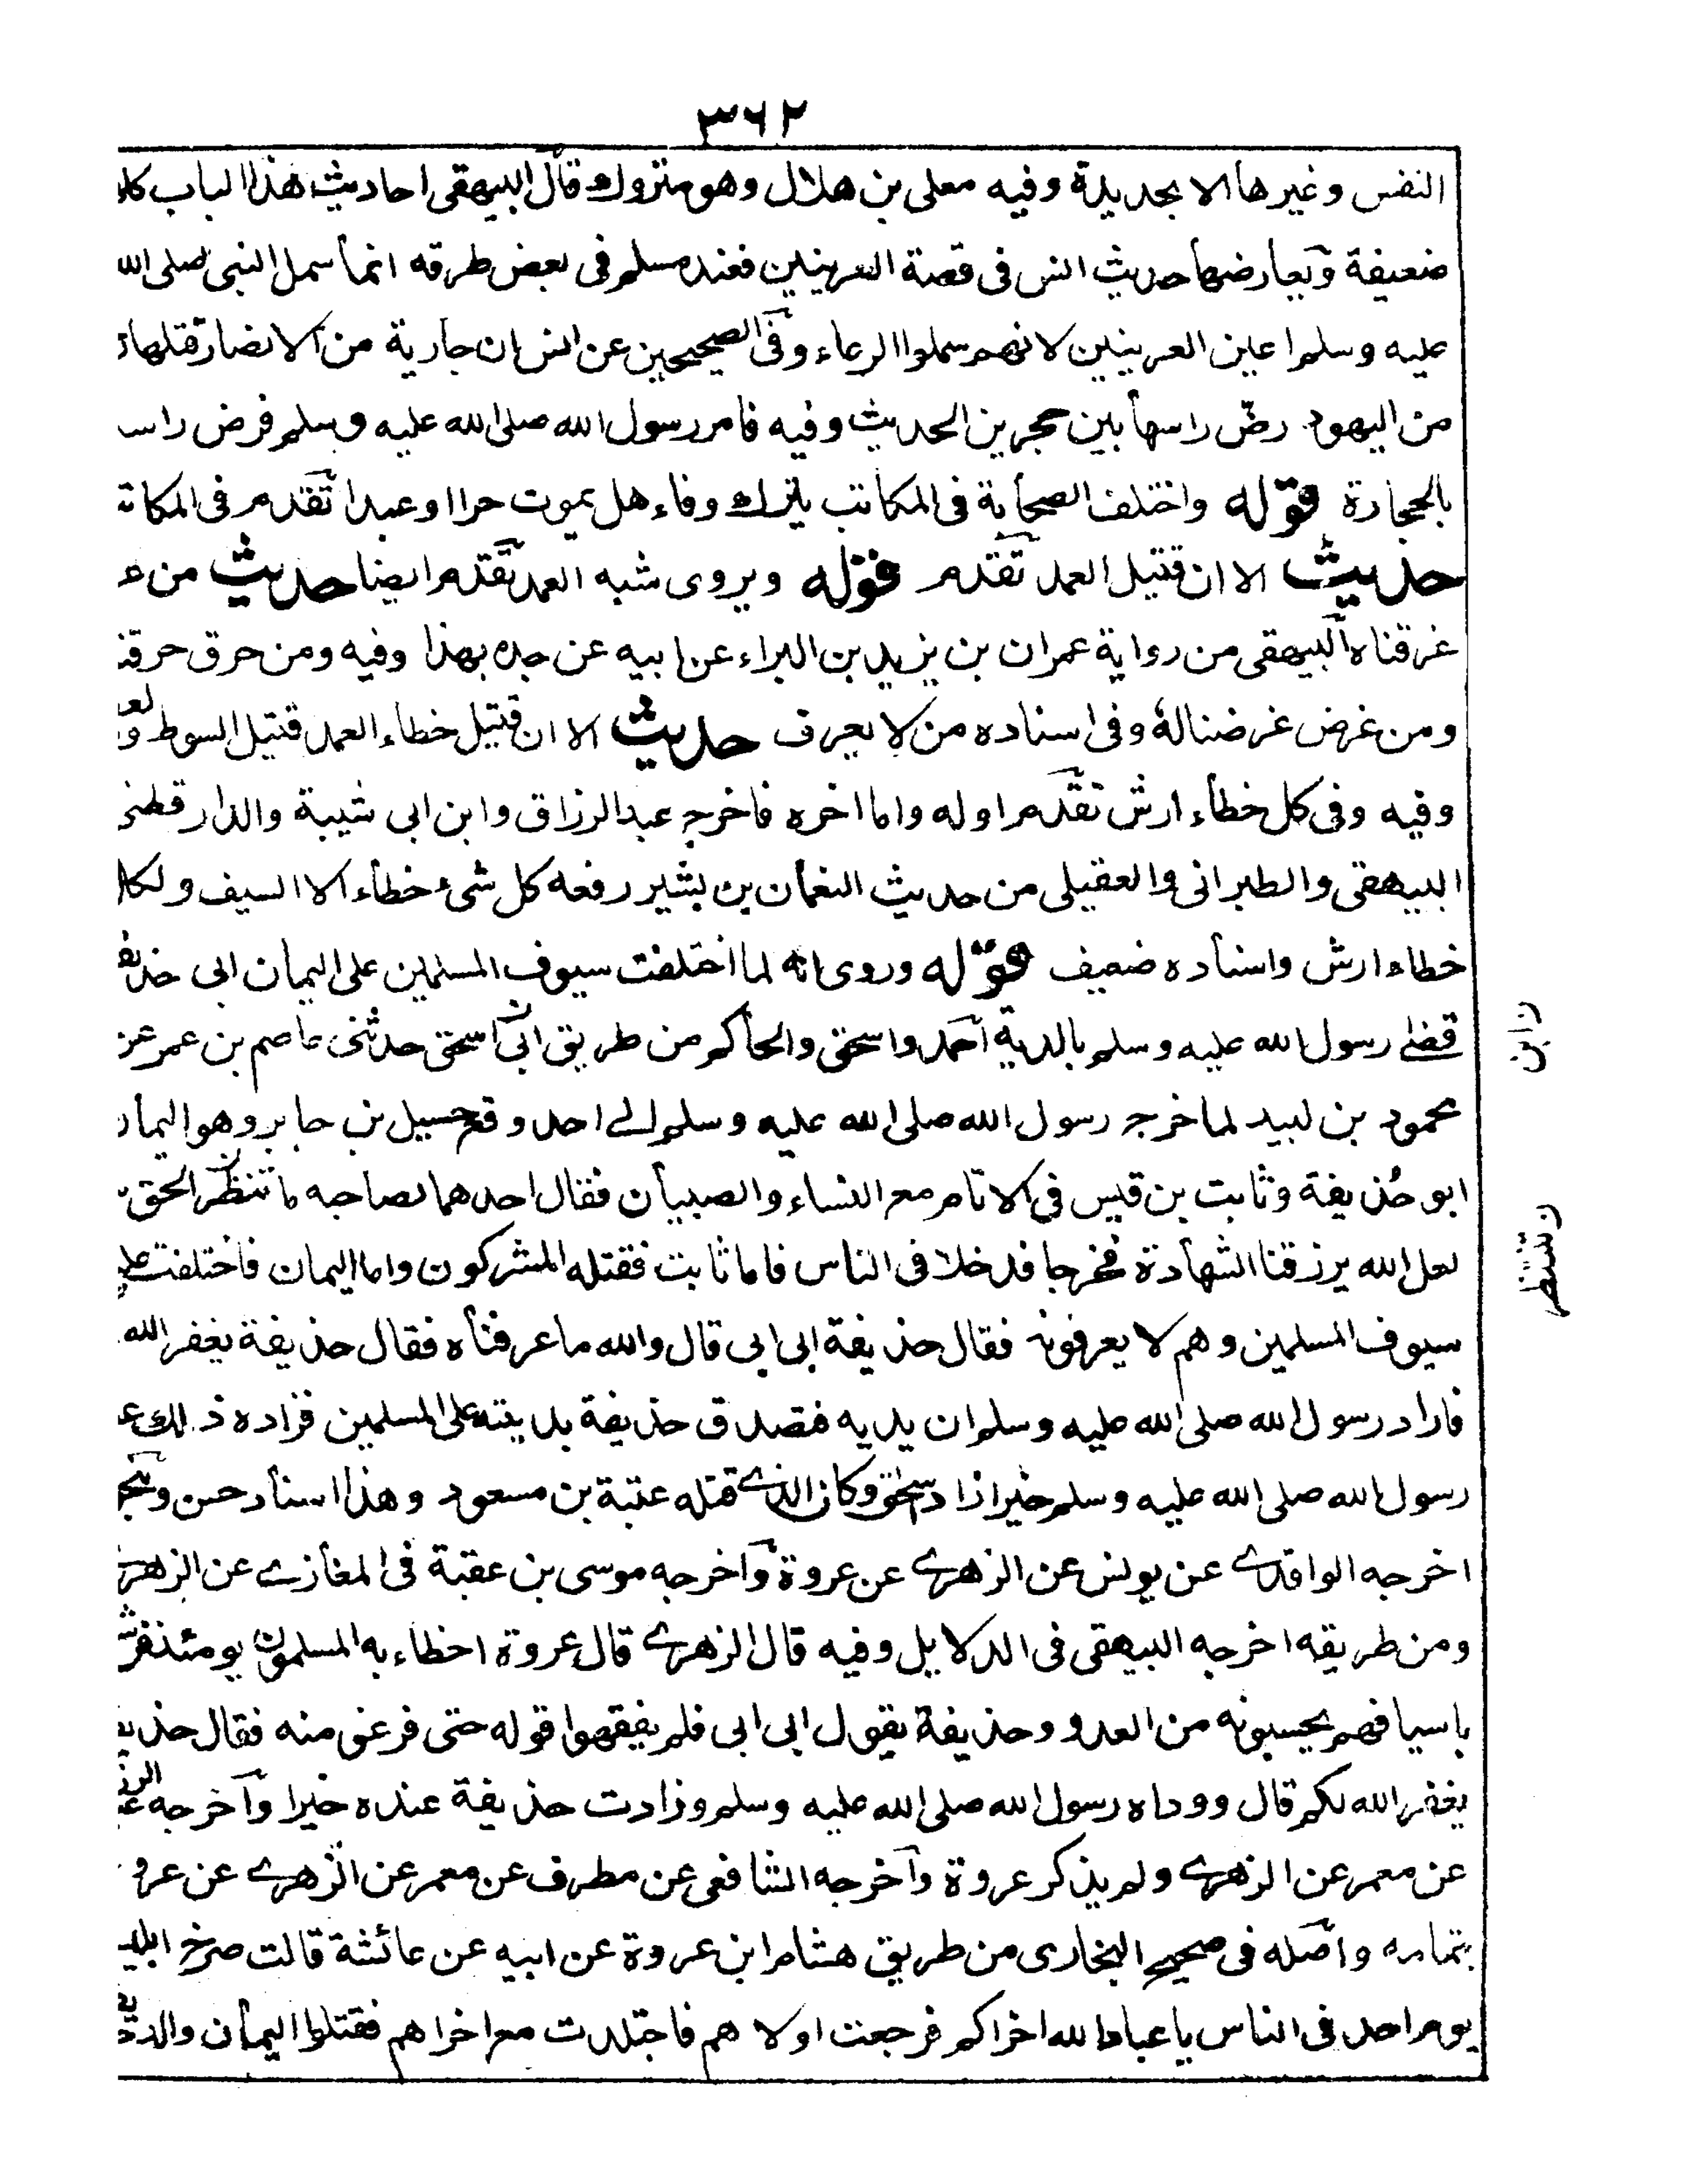 ٣٦٢
النفس وغيرها الا بحديدة وفيه معلى بن هلال وهو متروك قال البيهقى احاديث هذا الباب كل
ضعيفة ويعارضها حديث انس فى قصة العرينين فعند مسلم فى بعض طرقه انما سمل النبى صلى الله
عليه وسلم اعين العرينين لانهم سملوا الرعاء وفى الصحيحين عن انس ان جارية من الانصار قتلها
من اليهود رضّ راسها بين حجرين الحديث وفيه فامر رسول الله صلى الله عليه وسلم فرض راس
بالحجارة قوله واختلف الصحابة فى المكاتب يترك وفاء هل يموت حرا او عبدا تقدم فى المكات
حديث الا ان قتيل العمد تقدم قوله ويروى شبه العمد تقدم ايضا حديث من
غرقناه البيهقى من رواية عمران بن يزيد بن البراء عن ابيه عن جده بهذا وفيه ومن حرق حرقن
ومن غرض غرضنا له وفى اسناده من لا يعرف حديث الا ان قتيل خطاء العمد قتيل السوط و
وفيه وفى كل خطاء ارش تقدم اوله واما اخره فاخرجه عبد الرزاق وابن ابى شيبة والدارقطنى
البيهقى والطبرانى والعقيلى من حديث النعمان بن بشير رفعه كل شىء خطاء الا السيف ولكل
خطاء ارش واسناده ضعيف قوله وروى انه لما اختلفت سيوف المسلمين على اليمان ابى حذيف
قضى رسول الله عليه وسلم بالدية احمد واسحق والحاكم من طريق ابى اسحق حدثنى عاصم بن عمر عن
ن ابن
محمود بن لبيد لما خرج رسول الله صلى الله عليه وسلم الے احد وقع حسيل بن جابر وهو اليمان
ابو حُذيفة وثابت بن قيس فى الاتام مع النساء والصبيان فقال احدهما لصاحبه ما تنظر الحق
ن ننتظر
لعل الله يرزقنا الشهادة فخرجا فدخلا فى الناس فاما ثابت فقتله المشركون واما اليمان فاختلفت عليه
سيوف المسلمين وهم لا يعرفونه فقال حذيفة ابى ابى قال والله ما عرفناه فقال حذيفة يغفر الله
فاراد رسول الله صلى الله عليه وسلم ان يديه فتصدق حذيفة بديته على المسلمين فزاده ذلك ع
رسول الله صلى الله عليه وسلم خيرا زاد اسحق وكان الذے قتله عتبة بن مسعود وهذا اسناد حسن
اخرجه الواقدے عن يونس عن الزهرے عن عروة واخرجه موسى بن عقبة فى المغازے عن الزهرے
ومن طريقه اخرجه البيهقى فى الدلايل وفيه قال الزهرے قال عروة اخطاء به المسلمون يومئذ
باسيافهم يحسبونه من العدو وحذيفة يقول ابى ابى فلم يفقهوا قوله حتى فرغنى منه فقال حذيف
يغفر الله لكم قال ووداه رسول الله صلى الله عليه وسلم وزادت حذيفة عنده خيرا واخرجه
عن معمر عن الزهرے ولم يذكر عروة واخرجه الشافعى عن مطرف عن معمر عن الزهرے عن عرو
بتمامه واصله فى صحيح البخارى من طريق هشام ابن عروة عن ابيه عن عائشة قالت صرخ ابلي
يوم احد فى الناس يا عباد الله اخراكم فرجعت اولاهم فاجتلدت مع اخراهم فقتلوا اليمان والد